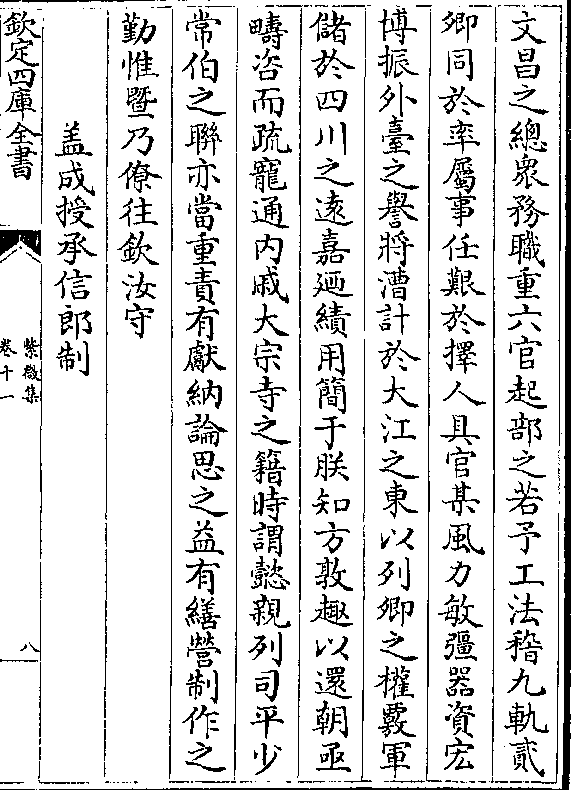 文昌之總衆務職重六官起部之若予工法稽九軌貳
卿同於率屬事任艱於擇人具官某風力敏彊器資宏
博振外臺之譽將漕計於大江之東以列卿之權覈軍
儲於四川之遠嘉廼績用簡于朕知方敦趣以還朝亟
疇咨而疏寵通内戚大宗寺之籍時謂懿親列司平少
常伯之聯亦當重責有獻納論思之益有繕營制作之
勤惟暨乃僚往欽汝守
盖成授承信郎制
欽定四庫全書
紫微集
卷十一
八